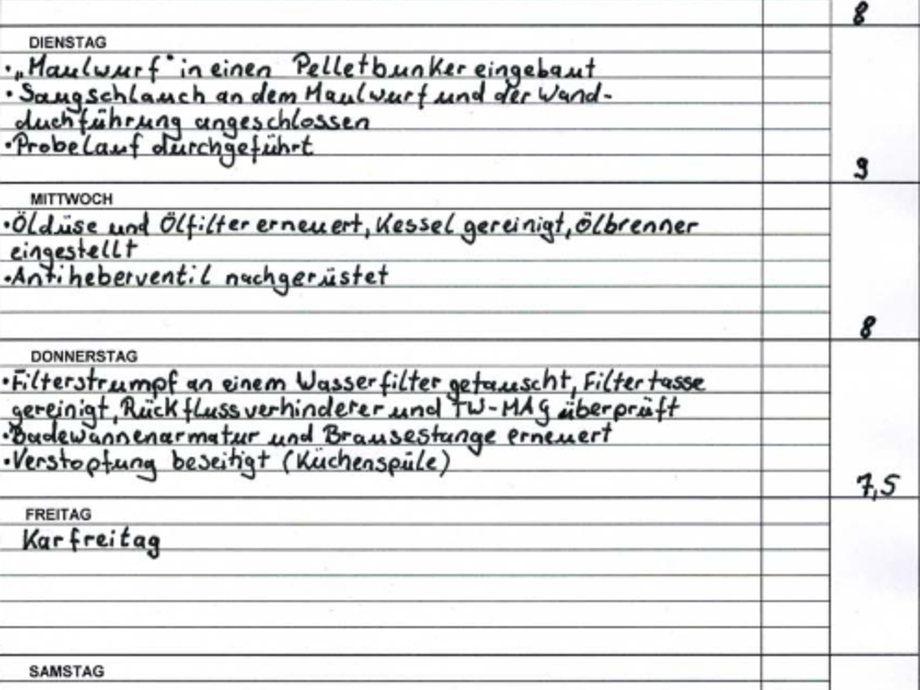 8
DIENSTAG
• „Maulwurf" in einen Pelletbunker eingebaut
• Saugschlauch an dem Maulwurf und der Wand-
duchführung angeschlossen
• Probelauf durchgeführt
9
MITTWOCH
• Öldüse und Ölfilter erneuert, Kessel gereinigt, Ölbrenner
eingestellt
• Antiheberventil nachgerüstet
8
DONNERSTAG
• Filterstrumpf an einem Wasserfilter getauscht, Filtertasse
gereinigt, Rückflussverhinderer und TW-MAG überprüft
• Badewannenarmatur und Brausestange erneuert
• Verstopfung beseitigt (Küchenspüle)
7,5
FREITAG
Karfreitag
SAMSTAG